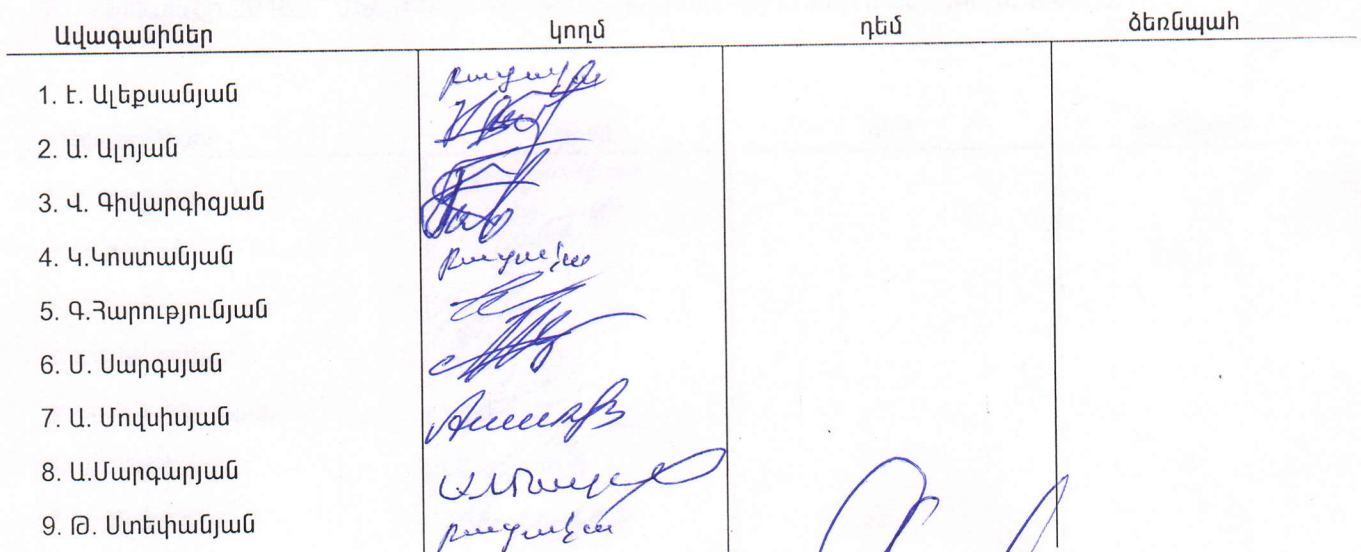 Ավագանիներ կողմ դեմ ձեռնպահ
1. Է. Ալեքսանյան բացակա
2. Ա. Ալոյան
3. Վ. Գիվարգիզյան
4. Կ.Կոստանյան բացակա
5. Գ.Հարությունյան
6. Մ. Սարգսյան
7. Ա. Մովսիսյան
8. Ա.Մարգարյան
9. Թ. Ստեփանյան բացակա